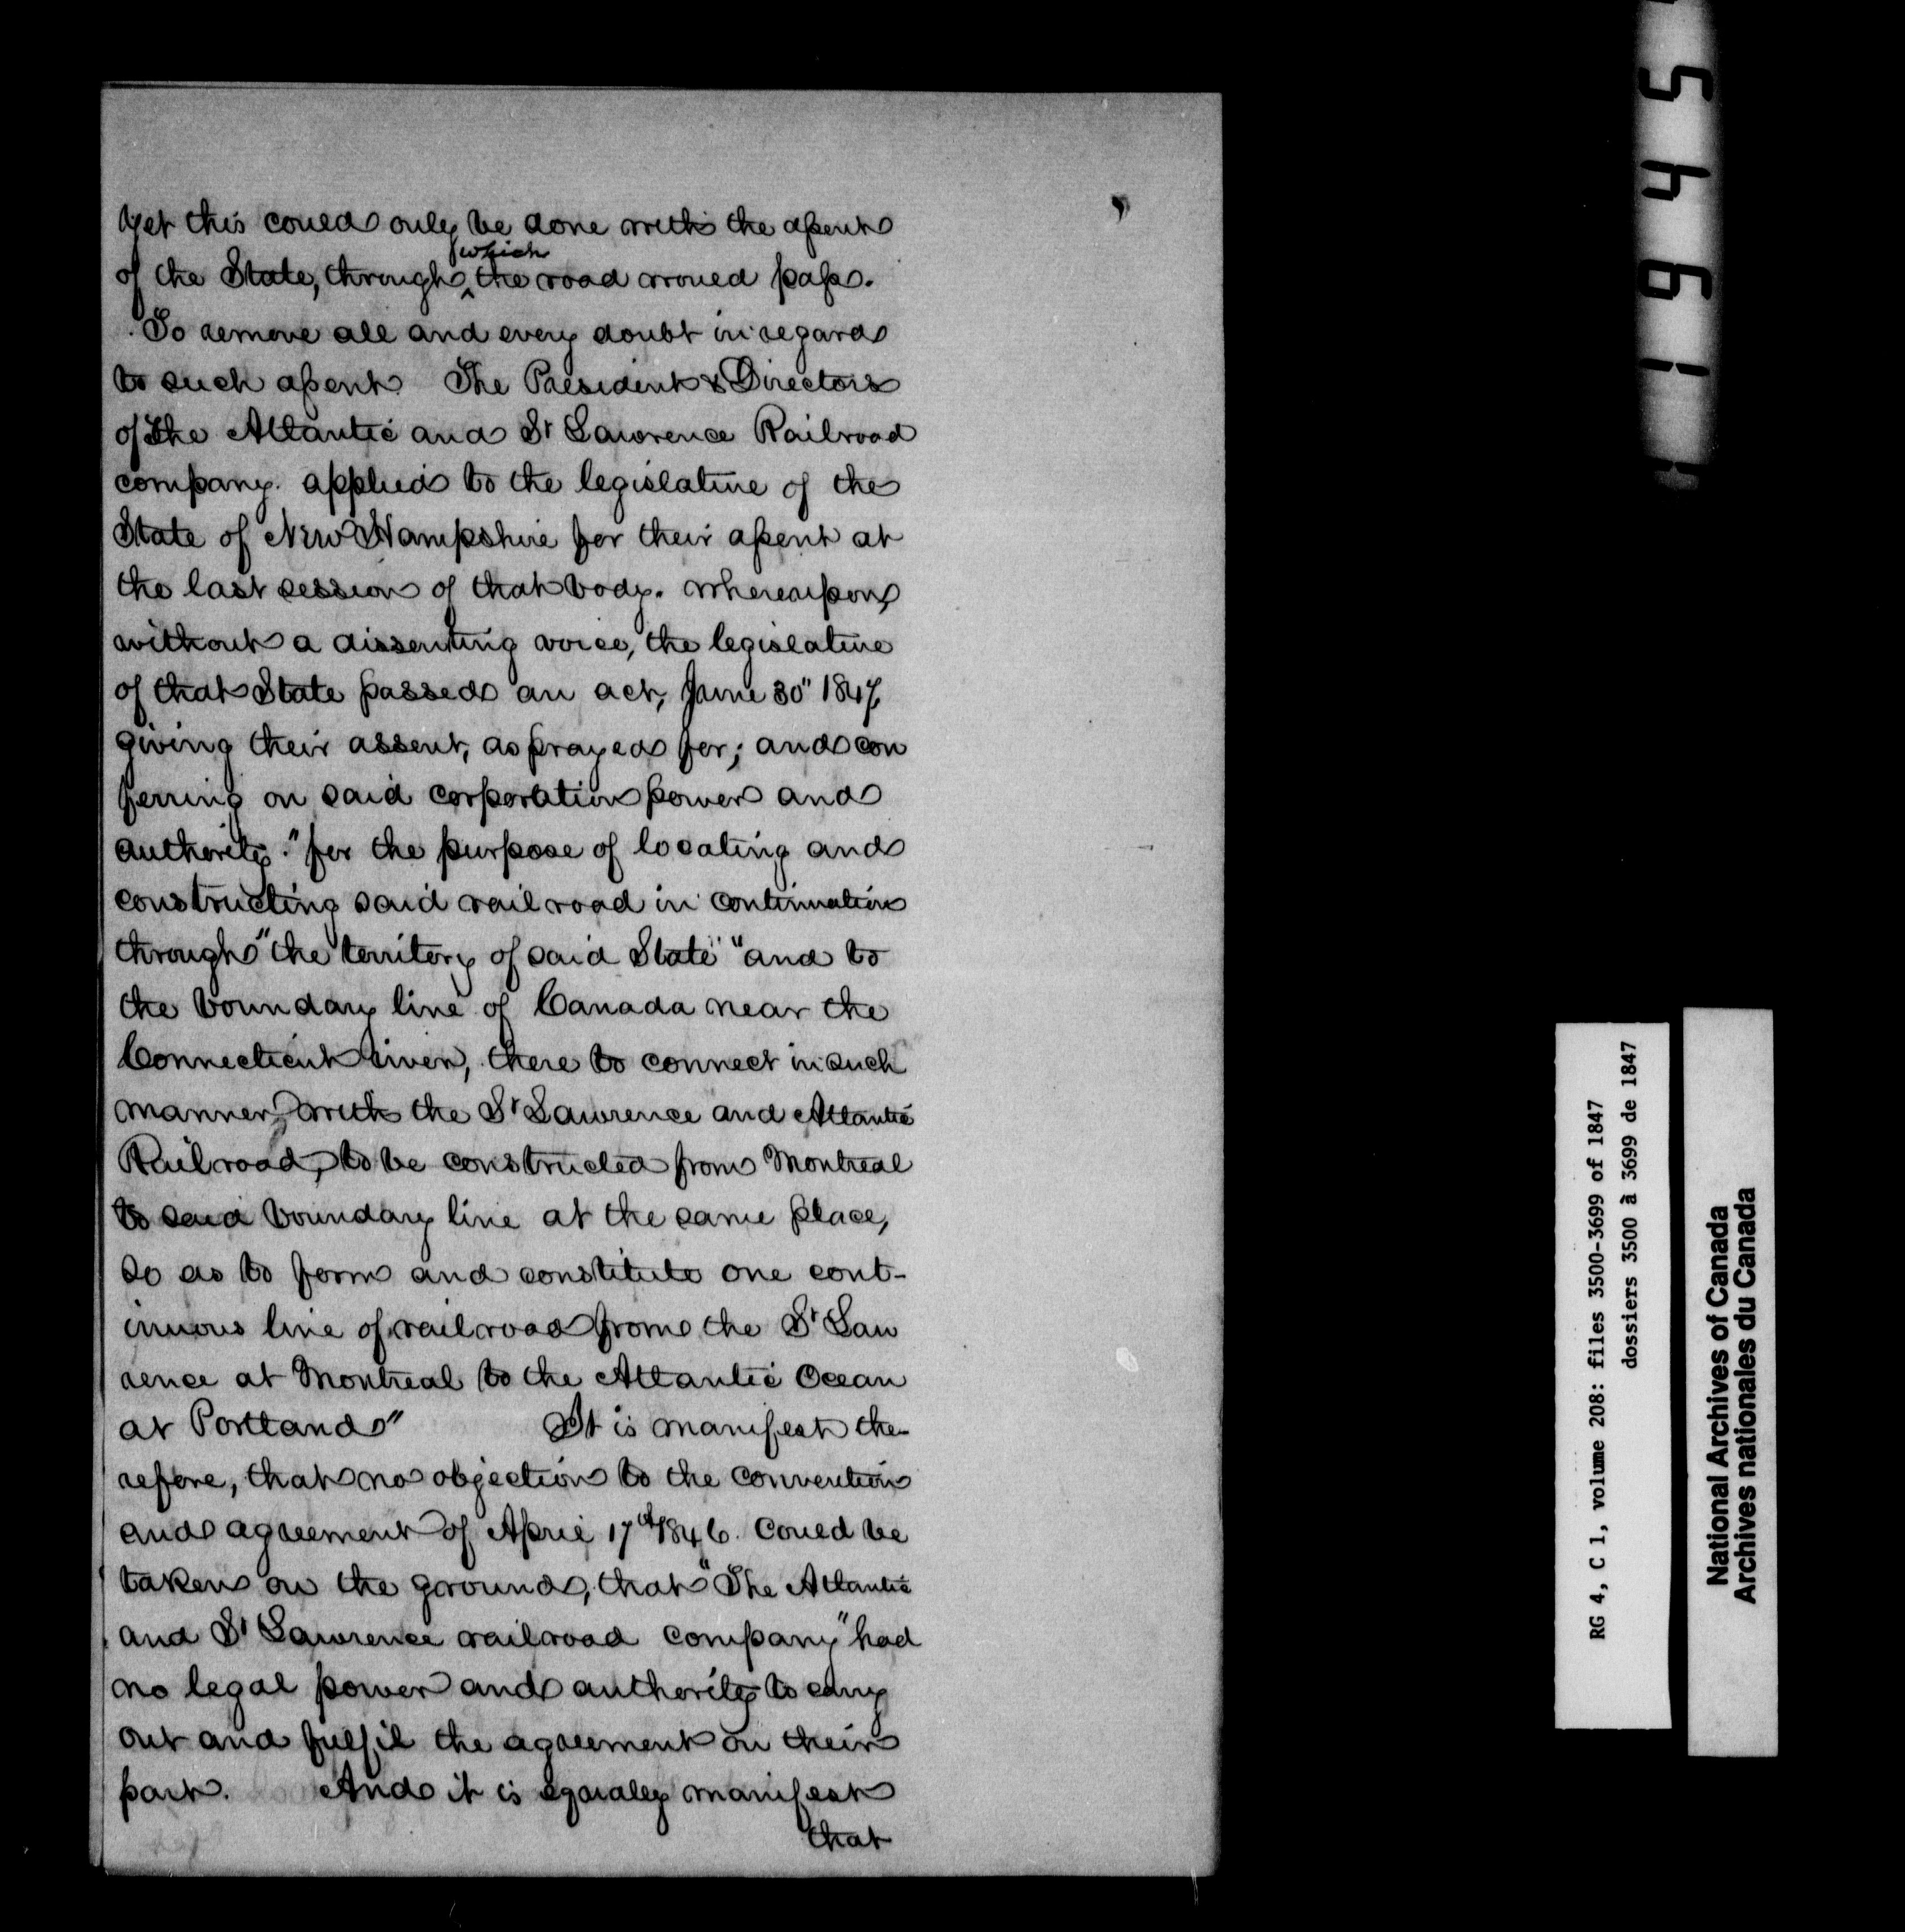 yet this could only be done with the assent
which
of the State, through ‸ the road would pass.
To remove all and every doubt in regard
to such assent The President & Directors
of the Atlantic and St Lawrence Railroad
company. applied to the legislature of the
State of New Hampshire for their assent at
the last session of that body. whereupon,
without a dissenting voice, the legislature
of that State passed an act, June 30" 1847,
giving their assent, as prayed for; and con
ferring on said corporation power and
authority. "for the purpose of locating and
constructing said railroad in continuation
through" the territory of said State" "and to
the boundary line of Canada near the
Connecticut river, there to connect in such
manner, with the St Lawrence and Atlantic
Railroad, to be constructed from Montreal
to said boundary line at the same place,
so as to form and constitute one cont-
inuous line of railroad from the St Law
rence at Montreal to the Atlantic Ocean
at Portland" It is manifest the-
refore, that no objection to the convention
and agreement of April 17th 1846. could be
taken on the ground, that "The Atlantic
and St Lawrence railroad company" had
no legal power and authority to carry
out and fulfil the agreement on their
part. And it is equally manifest
that
16445
RG 4, C 1, volume 208: files 3500-3699 of 1847
dossiers 3500 à 3699 de 1847
National Archives of Canada
Archives nationales du Canada